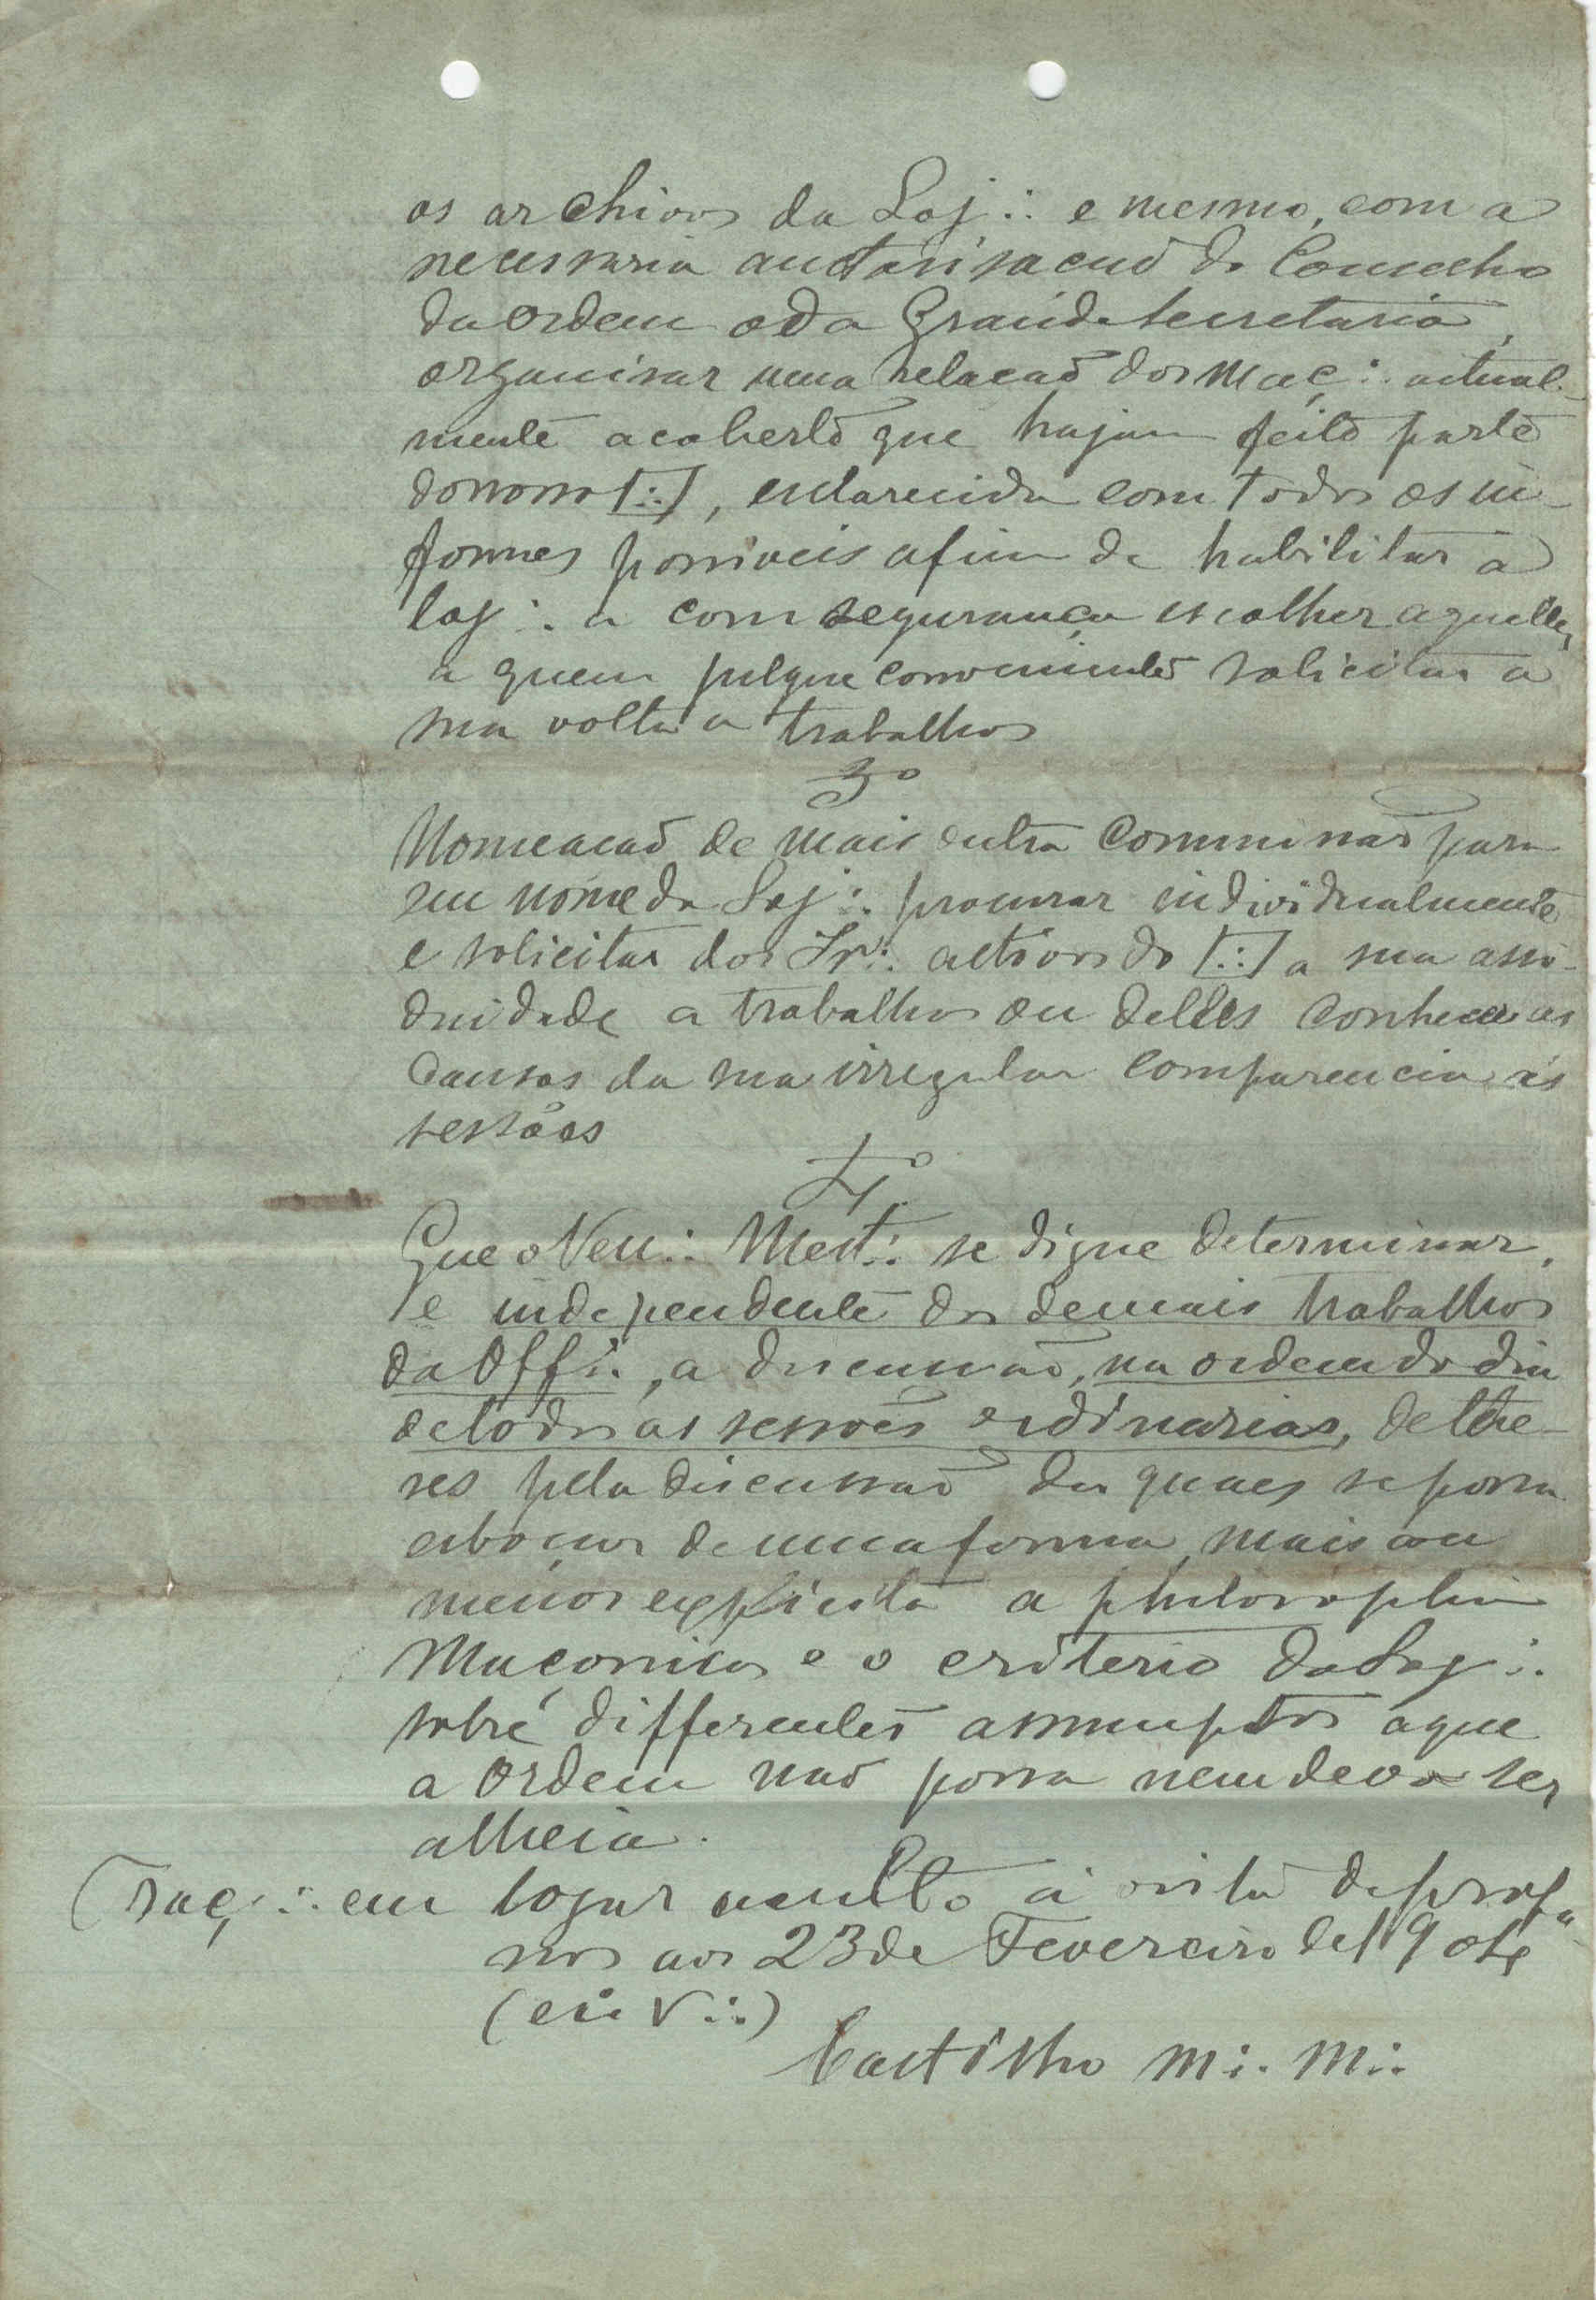 os archivos da Loj∴ e mesmo, com a
necessaria auctorisacaõ do Conselho
da Ordem e da Grande Secretaria,
organisar uma relacaõ dos Maç∴ actual-
mente a coberto que hajam feito parte
do nosso [∴], esclarecida com todos os in-
formes possiveis afim de habilitar a
loj∴ a com segurança escolher aquelles
a quem julgue conveniente solicitar a
sua volta a trabalhos
3º
Nomeacaõ de mais outra Commissaõ para
em nome da Loj∴ procurar individualmente
e solicitar dos Ir∴ activos do [∴] a sua assi-
duidade a trabalhos ou delles conhecer as
causas da sua irregular comparencia ás
sessões
4º
Que o Ven∴ Mest∴ se digne determinar,
e independente dos demais trabalhos
da Off∴, a discussaõ, na ordem do dia
de todas as sessões ordinarias, de the-
ses pela discussaõ das quaes se possa
esboçar de uma forma, mais ou
menos explicita a philosophia
Maçonica e o criterio da Loj∴
sobre differentes assumptos a que
a Ordem naõ possa nem deva ser
alheia.
Traç∴ em logar occulto á vista de profa-
nos aos 23 de Fevereiro de 1904
(era V∴)
Castilho M∴ M∴